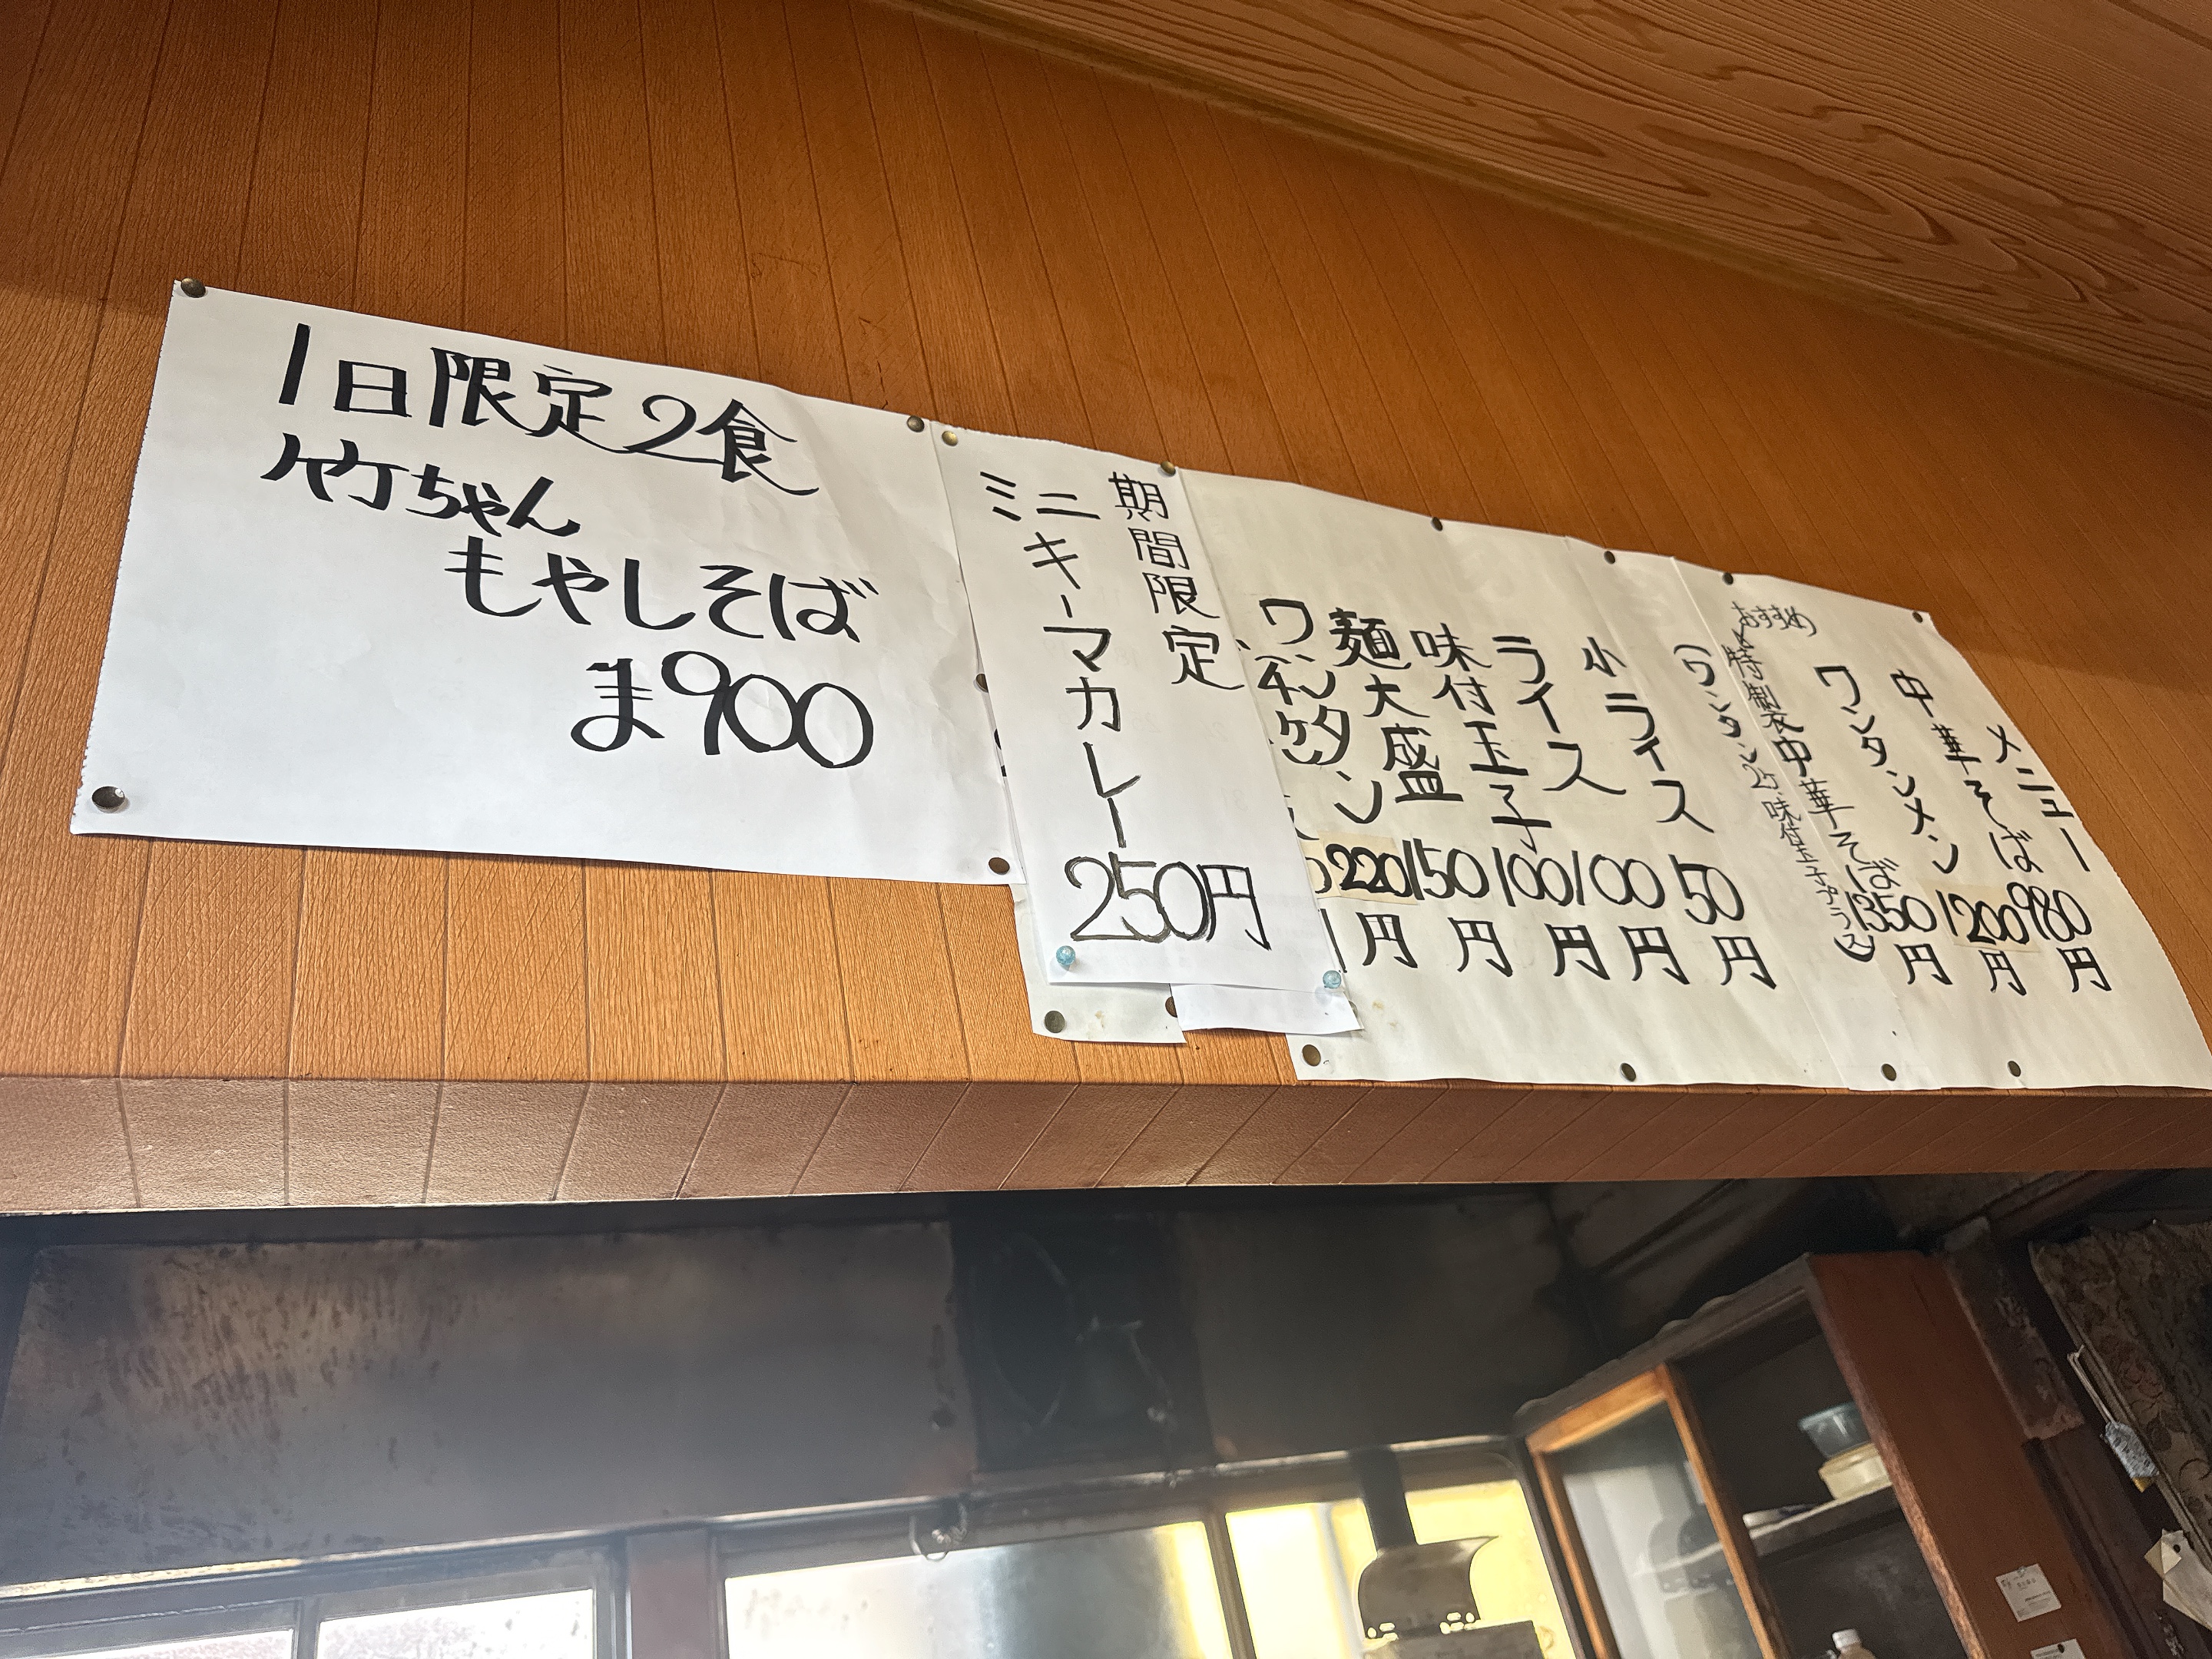 1日限定2食
竹ちゃん
もやしそば
ま900
期間限定
ミニキーマカレー
250円
メニュー
中華そば 980円
ワンタンメン 1200円
おすすめ
特製中華そば 1350円
(ワンタン2ケ味付玉子プラス)
小ライス 50円
ライス 100円
味付玉子 100円
麺大盛 150円
ワンタン 220円